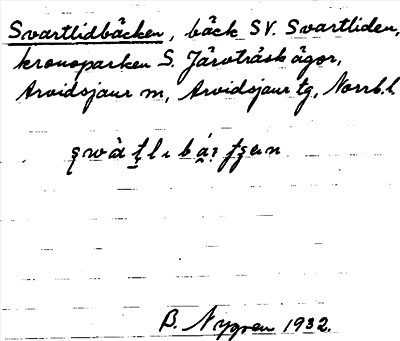 Svartlidbäcken, bäck SV. Svartliden,
kronoparken S. Järvträsk ägor,
Arvidsjaur m, Arvidsjaur tg, Norrb. l.
B. Nygren 1932.